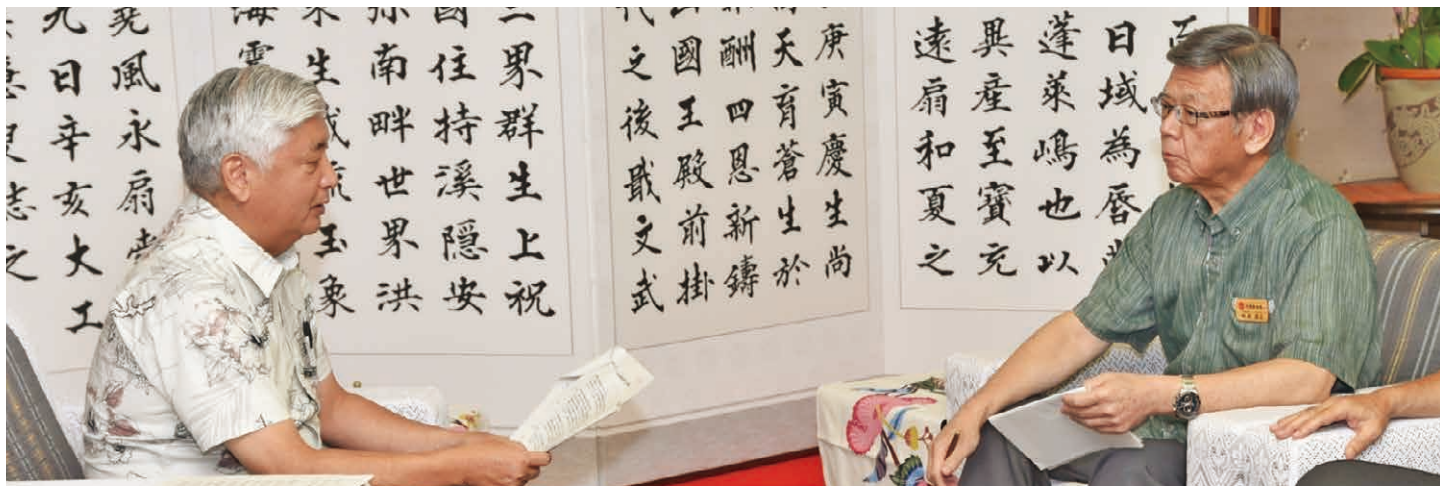 日域為脣
蓬萊嶋也以
異產至寶充
遠扇和夏之
庚寅慶生尚
天育蒼生於
酬四恩新鑄
國王殿前掛
之後戢文武
界群生上祝
國住持溪隱安
南畔世界洪
生
玉象
海
堯風永扇
九日辛亥大工
志之